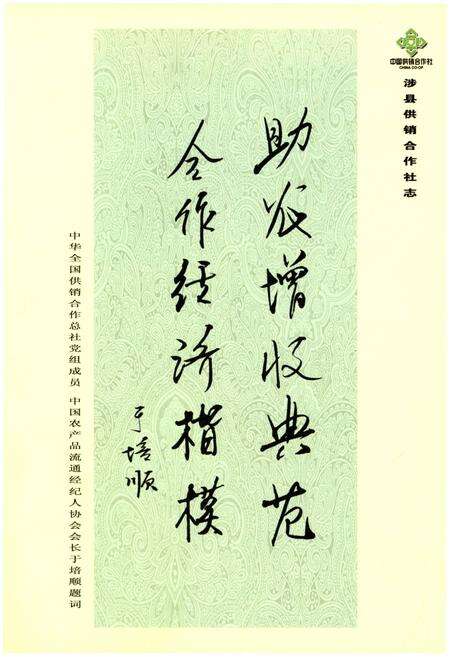 中国供销合作社
CHINA CO-OP
涉县供销合作社志
助农增收典范
合作经济楷模
于培顺
中华全国供销合作总社党组成员 中国农产品流通经纪人协会会长于培顺题词